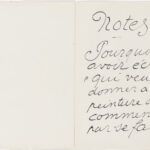 Notes
Pourquoi
avoir éc
qui veu
donner a
peinture
comment
par se fa